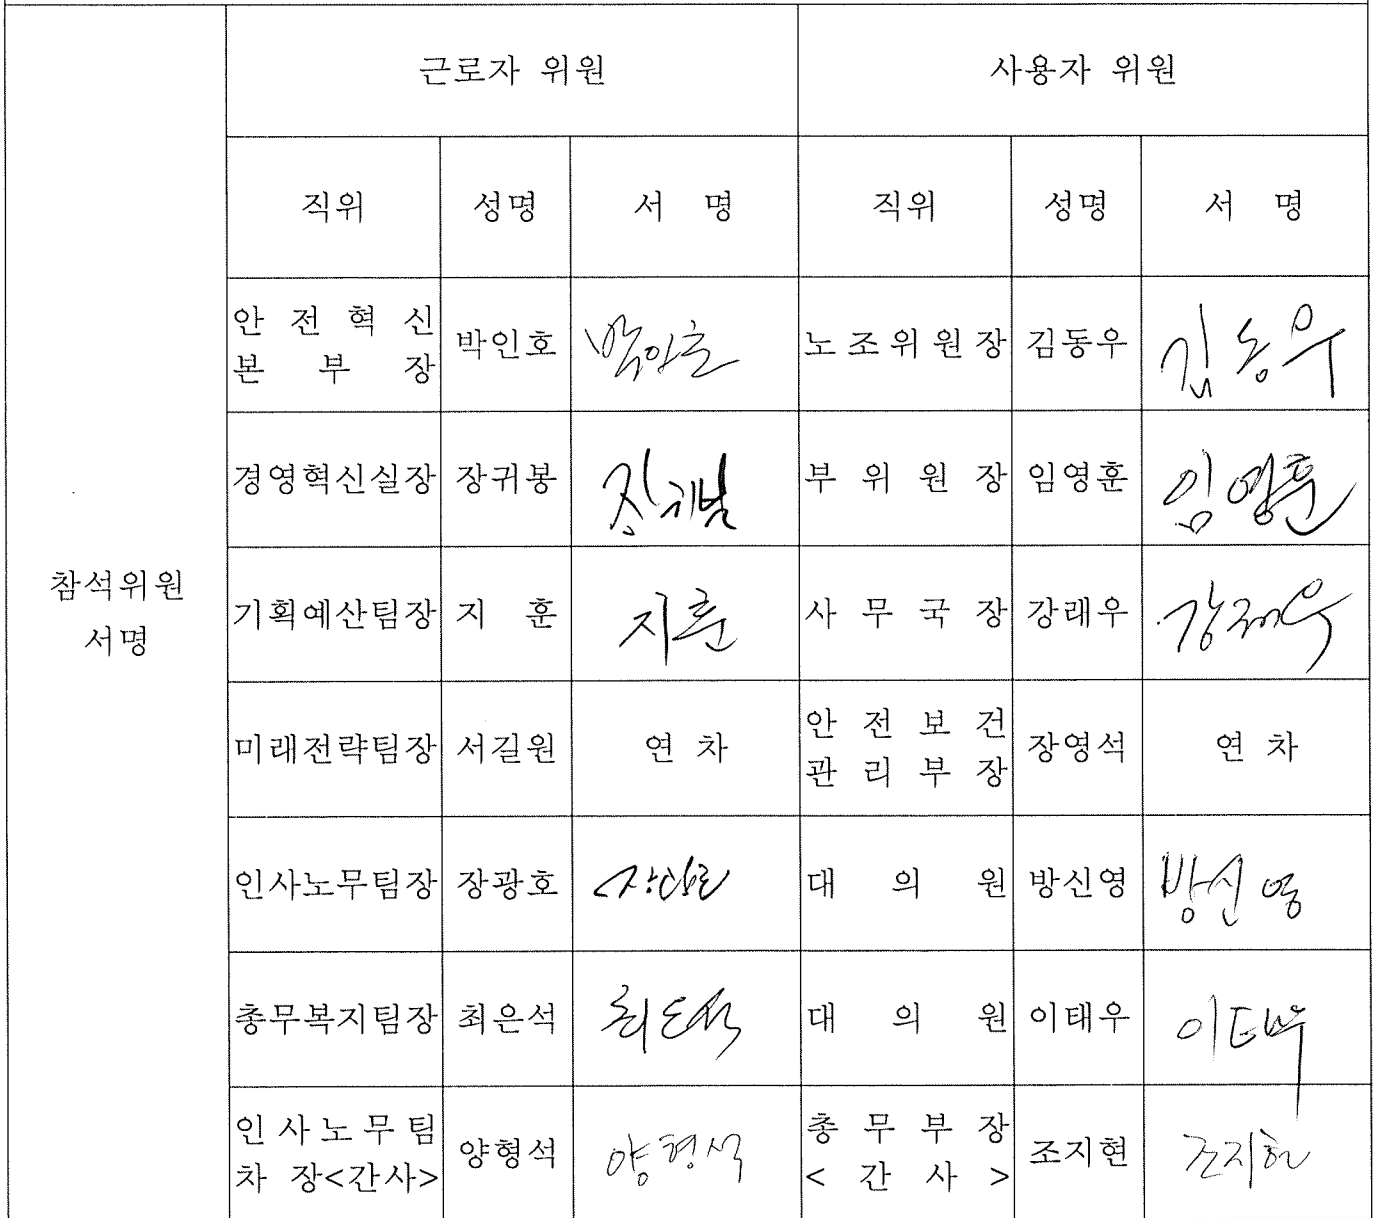 근로자 위원 사용자 위원
직위 성명 서 명 직위 성명 서 명
안 전 혁 신
본 부 장 박인호 박인호 노조위원장 김동우 김동우
경영혁신실장 장귀봉 부 위 원 장 임영훈 임영훈
참석위원
서명
기획예산팀장 지 훈 지훈 사 무 국 장 강래우 강래우
미래전략팀장 서길원 연 차 안 전 보 건
관 리 부 장 장영석 연 차
인사노무팀장 장광호 대 의 원 방신영 방신영
총무복지팀장 최은석 최은석 대 의 원 이태우 이태우
인사노무팀
차 장<간사> 양형석 양형석 총 무 부 장
< 간 사 > 조지현 조지현